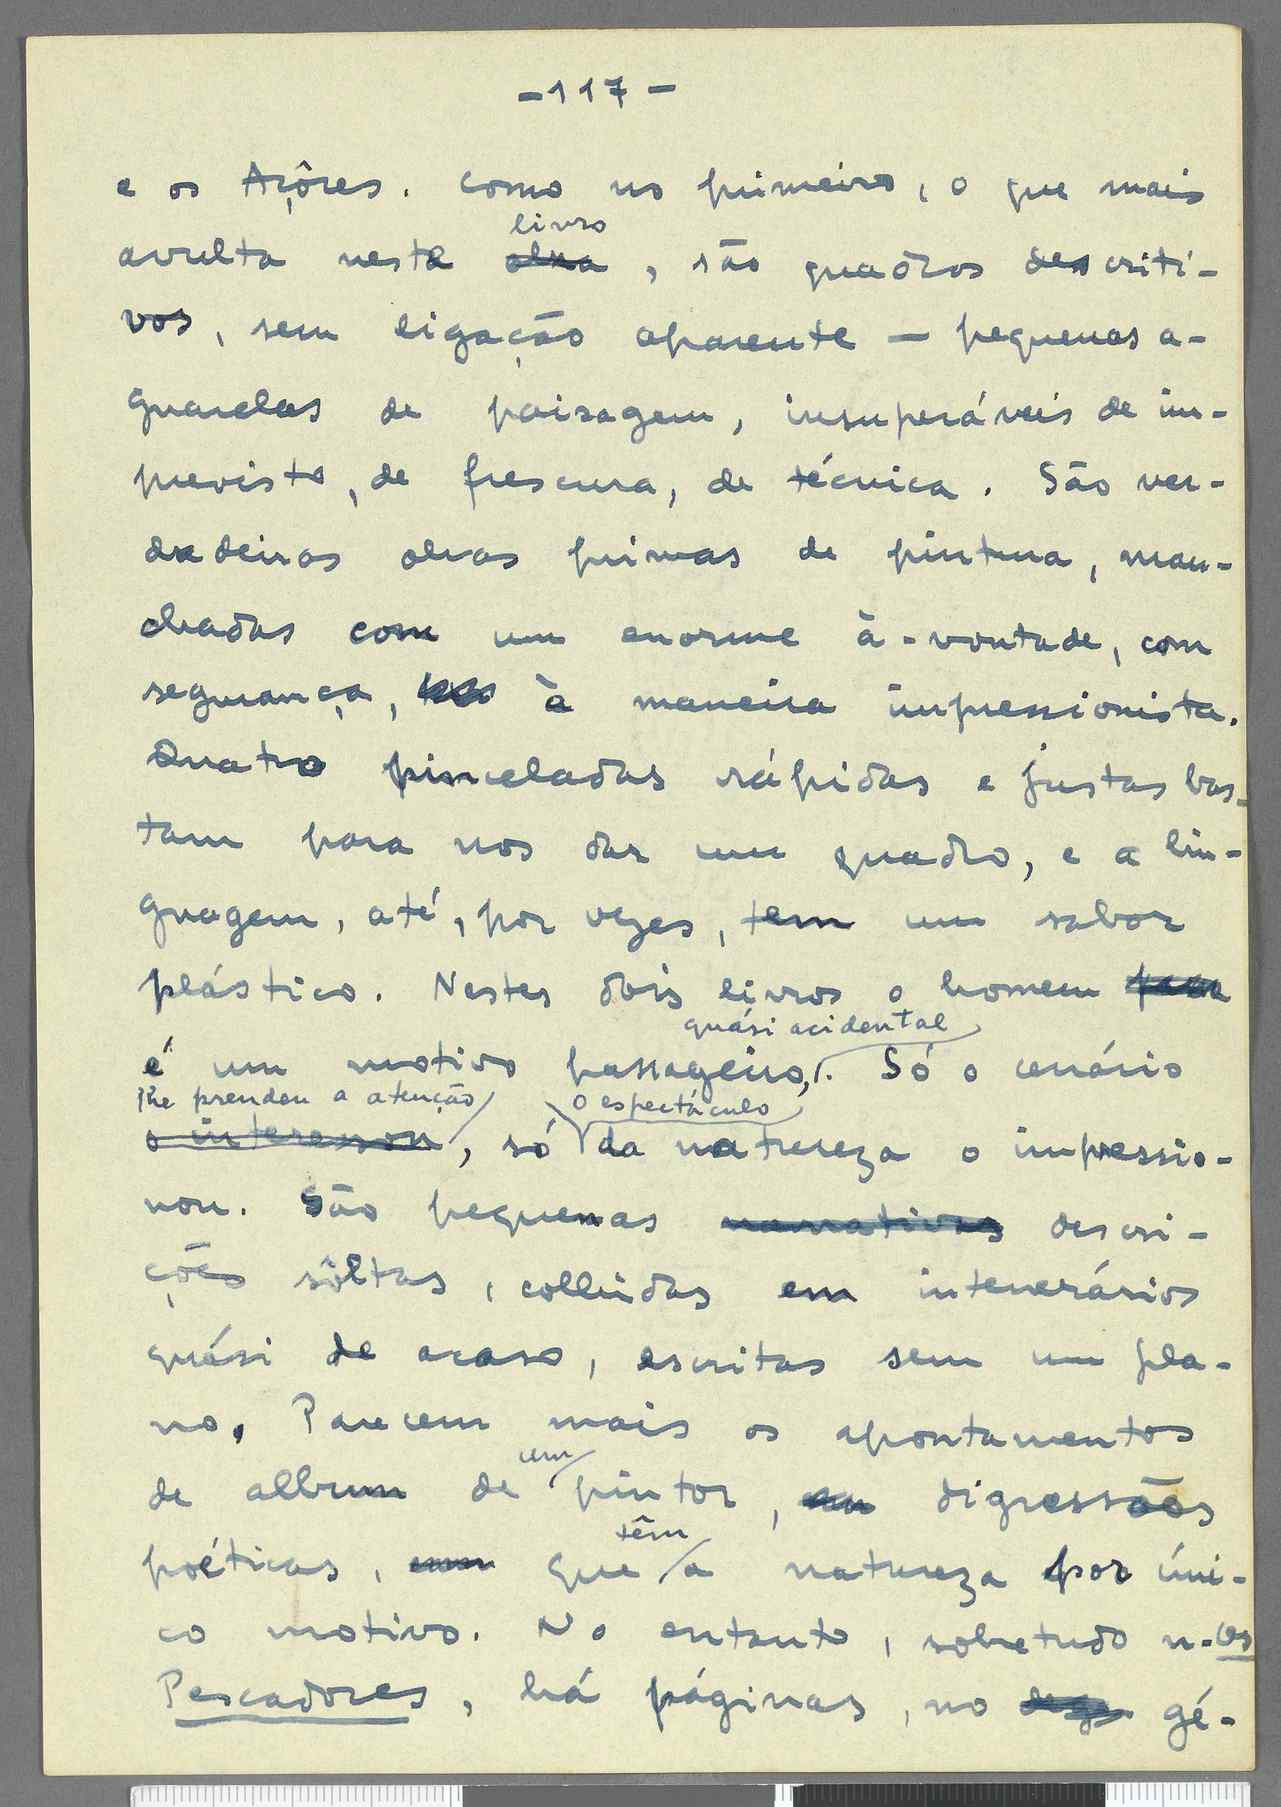 -117-
e os Açôres. Como no primeiro, o que mais
livro
avulta neste obra, são quadros descriti-
vos, sem ligação aparente — pequenas a-
guarelas de paisagem, insuperáveis de im-
previsto, de frescura, de técnica. São ver-
dadeiras obras primas de pintura, man-
chadas com um enorme à-vontade, com
segurança, à maneira impressionista.
Quatro pinceladas rápidas e justas bas-
tam para nos dar um quadro, e a lin-
guagem, até, por vezes, tem um sabor
plástico. Nestes dois livros o homem
quási acidental
é um motivo passageiro,. Só o cenário
lhe prendeu a atenção o espectáculo
o interessou, só da natureza o impressio-
nou. São pequenas narrativas descri-
ções sôltas, colhidas em intenerários
quási de acaso, escritas sem um pla-
no. Parecem mais os apontamentos
um
de album de pintor, digressões
têm
poéticas, que a natureza por úni-
co motivo. No entanto, sobretudo n-Os
Pescadores, há páginas, no gé-